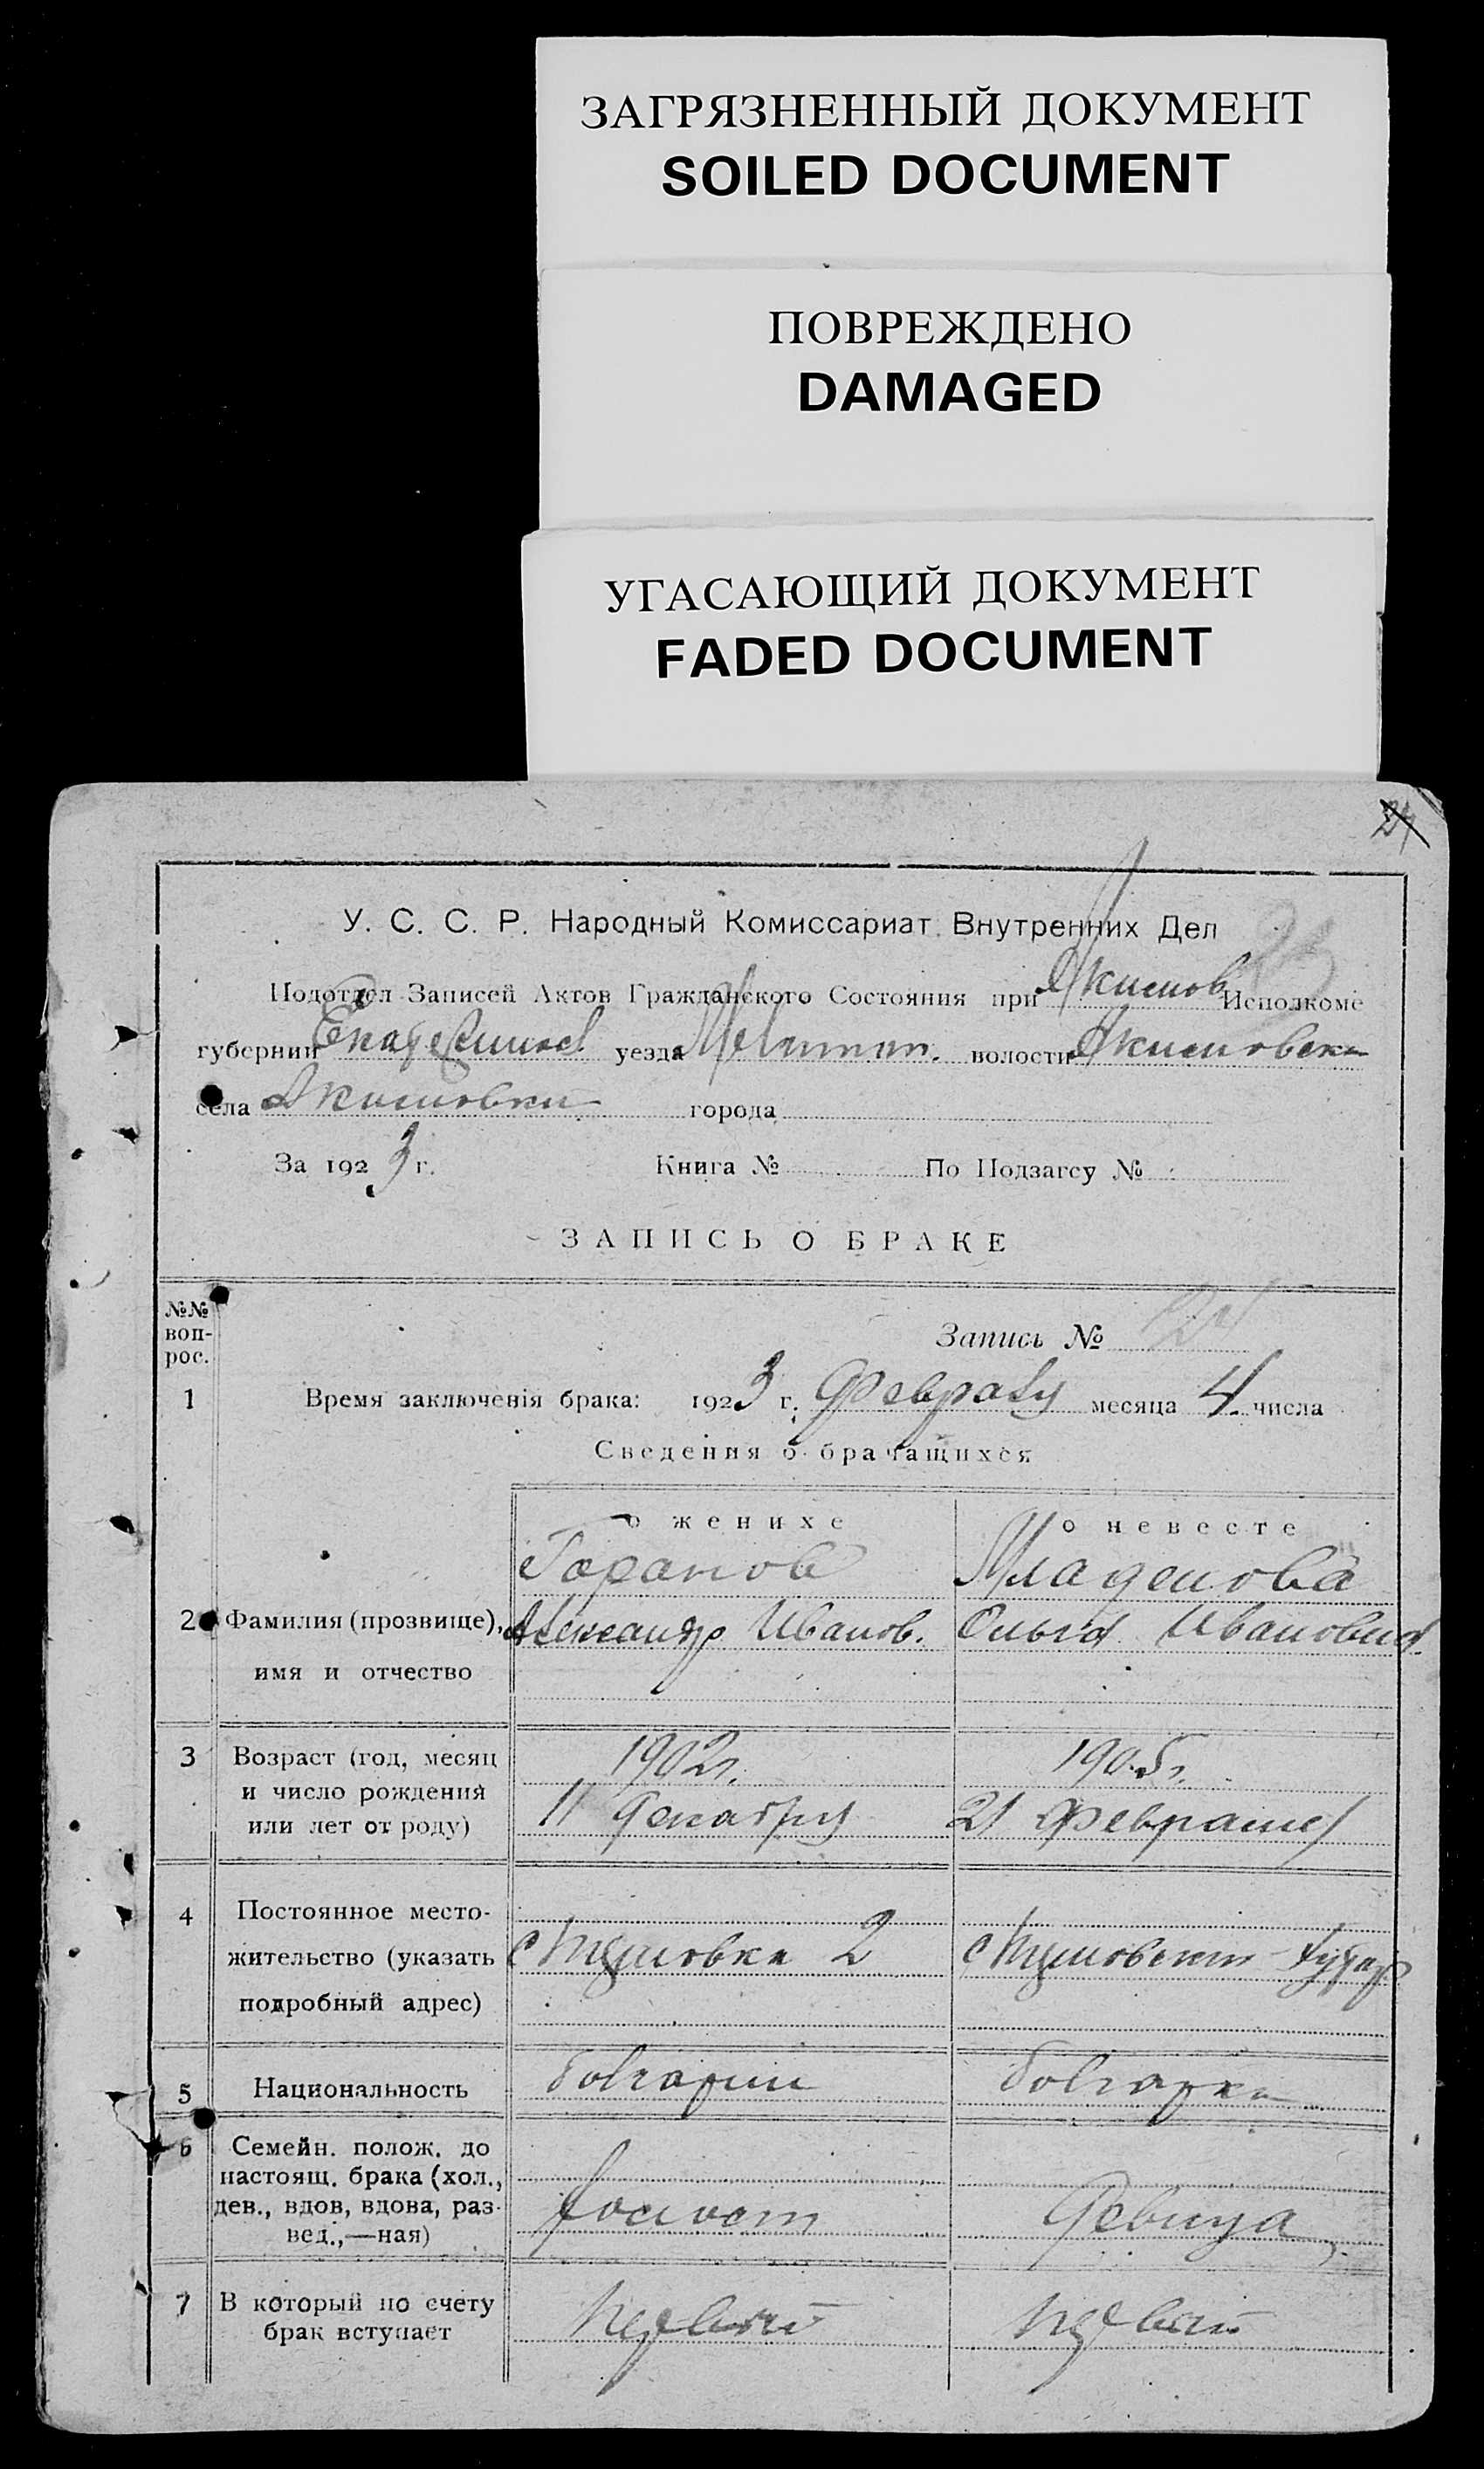 ЗАГРЯЗНЕННЫЙ ДОКУМЕНТ
SOILED DOCUMENT
ПОВРЕЖДЕНО
DAMAGED
УГАСАЮЩИЙ ДОКУМЕНТ
FADED DOCUMENT
24
У. С. С. Р. Народный Комиссариат Внутренних Дел
Подотдел Записей Актов Гражданского Состояния при Акимов Исполкоме
губернии Екатеринос уезда Мелитоп. волости Акимовск
села Акимовки города
За 1923 г. Книга № По Подзагсу №
ЗАПИСЬ О БРАКЕ
№№ воп-рос.
Запись № 24
1 Время заключенія брака: 1923 г. Февраля месяца 4 числа
Сведения о брачащихся
о женихе о невесте
Горанов Младенова
2 Фамилия (прозвище), Александр Иванов. Ольга Ивановна
имя и отчество
3 Возраст (год, месяц 1902 г. 1905 г.
и число рождения 11 Декабря 21 Февраля
или лет от роду)
4 Постоянное место-
жительство (указать с 2 с Хутор
подробный адрес)
5 Национальность болгарин болгарка
6 Семейн. полож. до
настоящ. брака (хол.,
дев., вдов, вдова, раз- холост Девица
вед.,—ная)
7 В который по счету первый первый
брак вступает